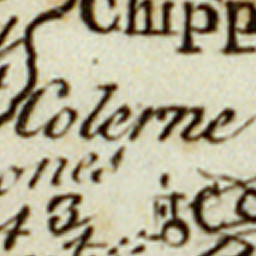 Chipp
Colerne
ones
43
Co